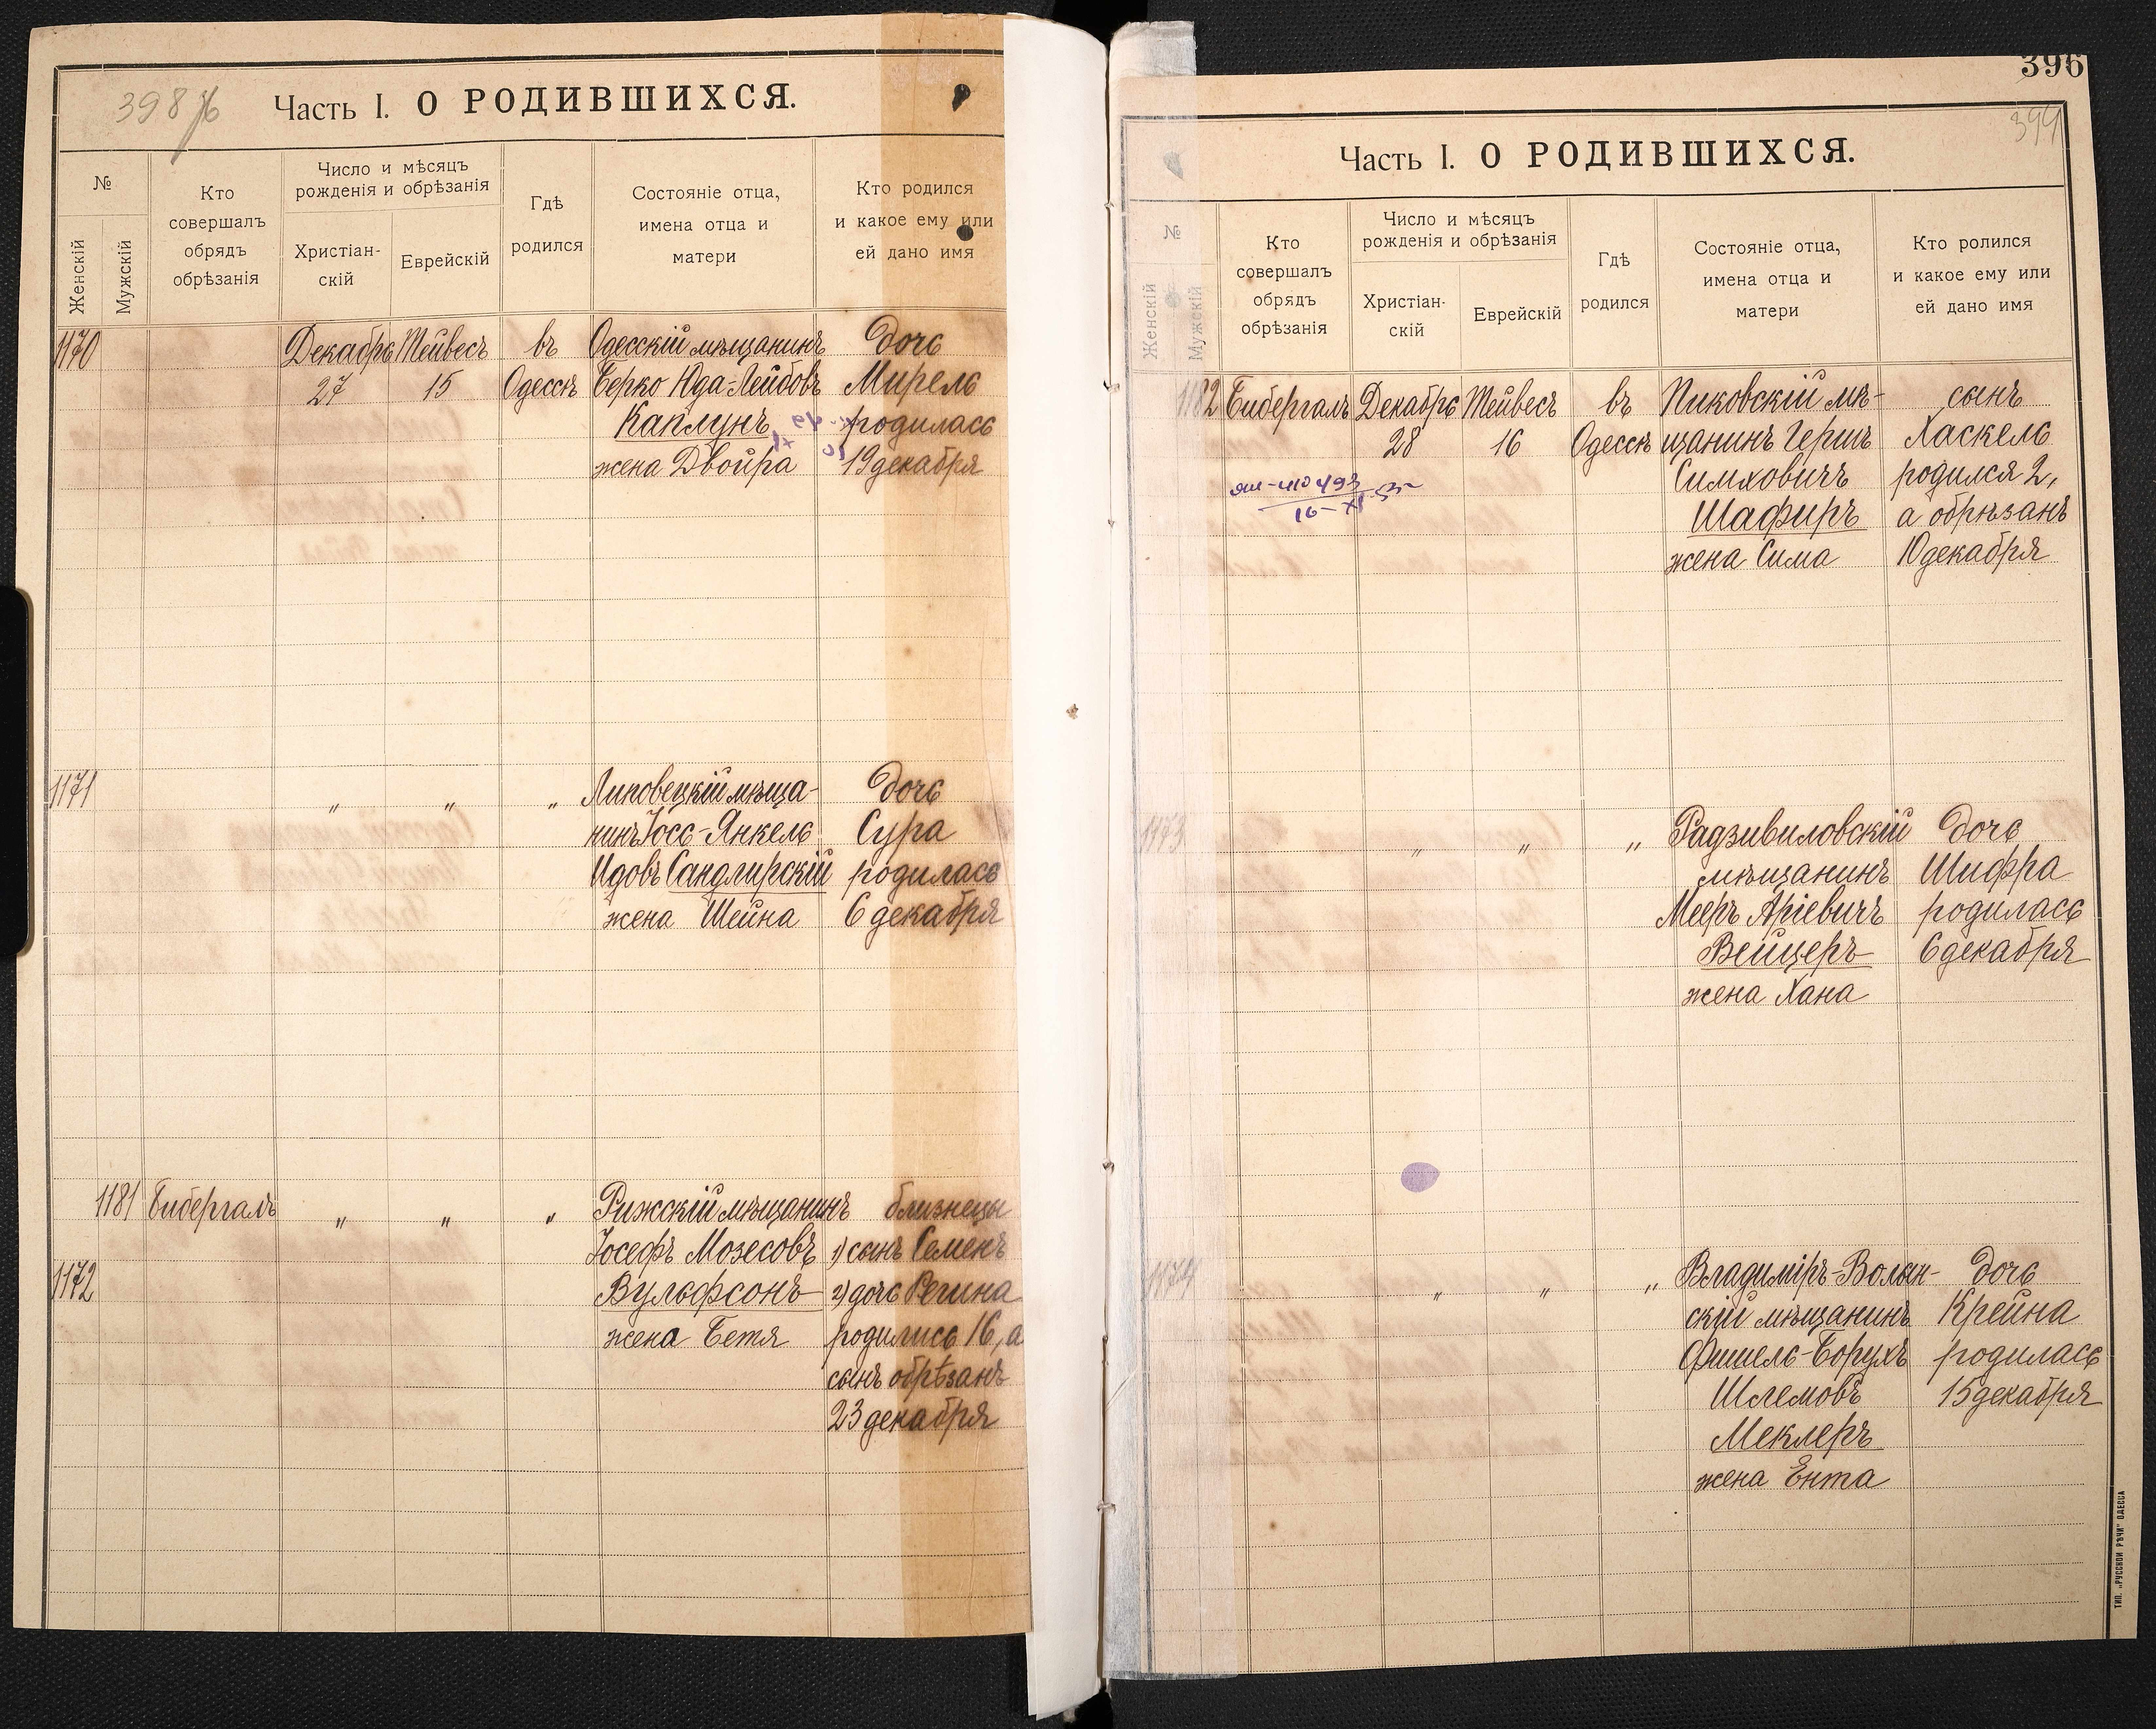 398 об
Часть I. О РОДИВШИХСЯ.
№
Женскій
Мужскій
Кто
совершалъ
обрядъ
обрѣзанія
Число и мѣсяцъ
рожденія и обрѣзанія
Христіан-
скій
Еврейскій
Гдѣ
родился
Состояніе отца,
имена отца и
матери
Кто родился
и какое ему или
ей дано имя
1170 Декабрь Тейвесъ въ Одесскій мѣщанинъ дочь
27 15 Одессѣ Берко Юда-Лейбовъ Мирель
Каплунъ родилась
жена Двойра 19 декабря
1171 " " " Липовецкій мѣща- дочь
нинъ Іось-Янкель Сура
Идовъ Сандлирскій родилась
жена Шейна 6 декабря
1181 Бибергалъ " " " Рижскій мѣщанинъ близнецы
Іосефъ Мозесовъ 1) сынъ Семенъ
1172 Вульфсонъ 2) дочь Регина
жена Бетя родились 16, а
сынъ обрѣзанъ
23 декабря
396
399
Часть I. О РОДИВШИХСЯ.
№
Женскій
Мужскій
Кто
совершалъ
обрядъ
обрѣзанія
Число и мѣсяцъ
рожденія и обрѣзанія
Христіан-
скій
Еврейскій
Гдѣ
родился
Состояніе отца,
имена отца и
матери
Кто ролился
и какое ему или
ей дано имя
1182 Бибергалъ Декабрь Тейвесъ въ Пиковскій мѣ- сынъ
28 16 Одессѣ щанинъ Гершъ Хаскель
Симховичъ родился 2,
Шафиръ а обрѣзанъ
жена Сима 10 декабря
1173 " " " Радзивиловскій дочь
мѣщанинъ Шифра
Мееръ Аріевичъ родилась
Вейцеръ 6 декабря
жена Хана
1174 " " " Владиміръ-Волын- дочь
скій мѣщанинъ Крейна
Фишель-Борухъ родилась
Шлемовъ 15 декабря
Меклеръ
жена Ента
ТИП. „РУССКОЙ РѢЧИ" ОДЕССА